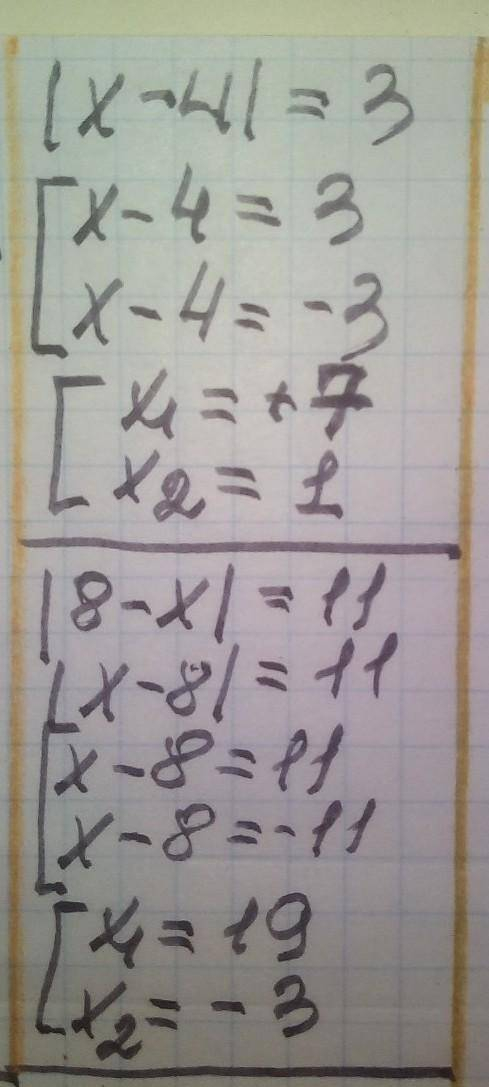 |x-4| = 3
[x-4 = 3
x-4 = -3
[x₁ = +7
x₂ = 1
|8-x| = 11
|x-8| = 11
[x-8 = 11
x-8 = -11
[x₁ = 19
x₂ = -3